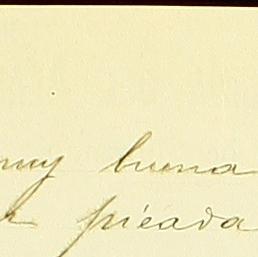 muy buena
picada